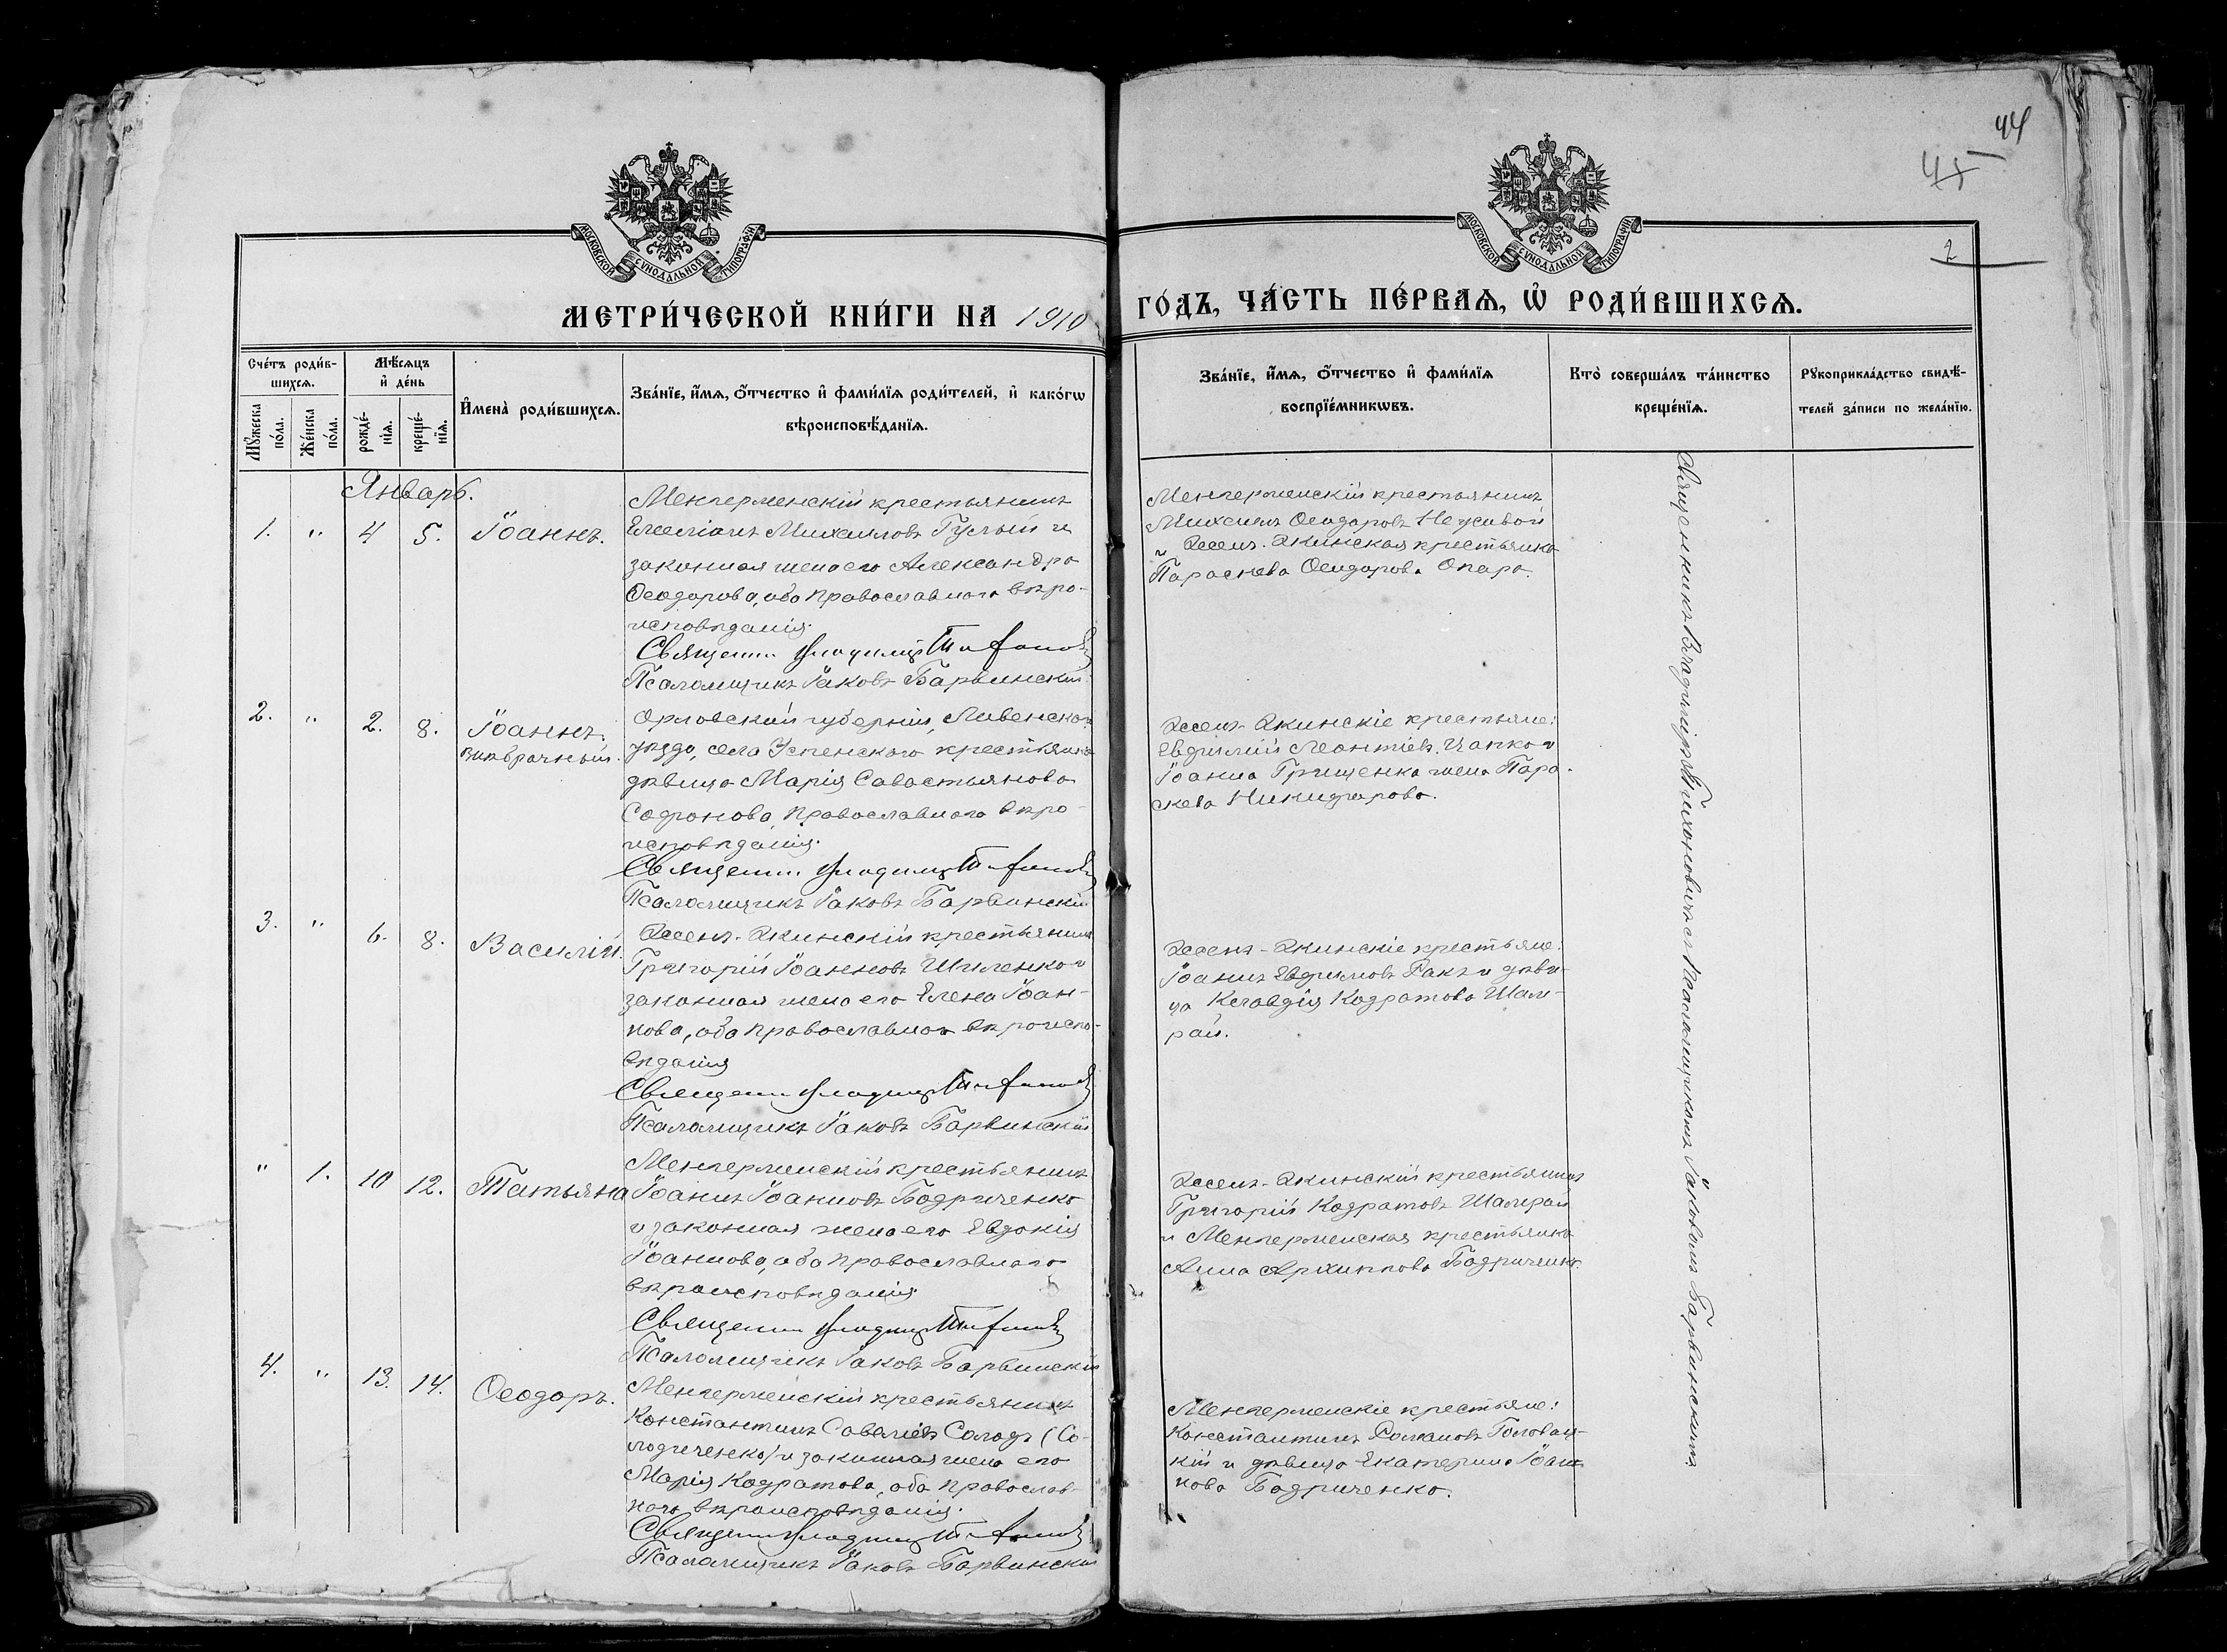 44
45
2
МОСКОВСКОЙ СУНОДАЛЬНОЙ ТИПОГРАФІИ
МОСКОВСКОЙ СУНОДАЛЬНОЙ ТИПОГРАФІИ
МЕТРИ́ЧЕСКОЙ КНИ́ГИ НА 1910
ГО́ДЪ, ЧА́СТЬ ПЕ́РВАѦ, Ѡ҆ РОДИ́ВШИХСѦ.
Сче́тъ роди́в-
шихсѧ.
Мꙋжеска по́ла.
Же́нска по́ла.
Мѣ́сѧцъ
и҆ де́нь
рожде́-
нїѧ.
креще́-
нїѧ.
И҆мена̀ роди́вшихсѧ.
Зва́нїе, и҆́мѧ, ѻ҆́тчество и҆ фами́лїѧ роди́телей, и҆ како́гѡ
вѣроисповѣ́данїѧ.
Зва́нїе, и҆́мѧ, ѻ҆́тчество и҆ фами́лїѧ
воспрїе́мникѡвъ.
Кто̀ соверша́лъ та́инство
креще́нїѧ.
Рꙋкоприкла́дство свидѣ́-
телей за́писи по жела́нїю.
Январь.
1. " 4 5. Іоаннъ.
Менгерменскій крестьянинъ
Емеліанъ Михаиловъ Гулый и
законная жена его Александра
Ѳеодорова, оба православнаго вѣро-
исповѣданія.
Священн. Владимір
Псаломщикъ Іаковъ Барвинскій
Менгерменскій крестьянинъ
Михаилъ Ѳеодоровъ Неживой
и крестьянка
Параскева Ѳеодорова Опара.
2. " 2. 8. Іоаннъ.
внѣбрачный.
Орловской губерніи, Ливенскаго
уѣзда, села Успенскаго крестьянка
дѣвица Марія Савастьянова
Софронова, православнаго вѣро-
исповѣданія.
Священн. Владимір
Псаломщикъ Іаковъ Барвинскій
крестьяне:
Евфимій Леонтіевъ Цапко и
Іоанна Грищенка жена Пара-
скева Никифорова.
3. " 6. 8. Василій.
крестьянинъ
Григорій Іоанновъ Шиленко и
законная жена его Елена Іоан-
нова, оба православнаго вѣроиспо-
вѣданія
Священн. Владимір
Псаломщикъ Іаковъ Барвинскій
крестьяне:
Іоаннъ Евфимовъ Ракъ и дѣви-
ца Клавдія Кодратова Шам-
рай.
" 1. 10 12. Татьяна
Менгерменскій крестьянинъ
Іоаннъ Іоанновъ Бодриченко
и законная жена его Евдокія
Іоаннова, оба православнаго
вѣроисповѣданія.
Священн. Владимір
Псаломщикъ Іаковъ Барвинскій
крестьянинъ
Григорій Кодратовъ Шамрай
и Менгерменская крестьянка
Анна Архиппова Бодриченко.
4. " 13. 14. Ѳеодоръ.
Менгерменскій крестьянинъ
Константинъ Савеліевъ Солодъ (Со-
лодченко) и законная жена его
Марія Кодратова, оба православ-
наго вѣроисповѣданія.
Священн. Владимір
Псаломщикъ Іаковъ Барвинскій
Менгерменскіе крестьяне:
Константинъ Романовъ Головац-
кій и дѣвица Екатерина Іоан-
нова Бодриченко.
Священникъ Владиміръ съ псаломщикомъ Іаковомъ Барвинскимъ